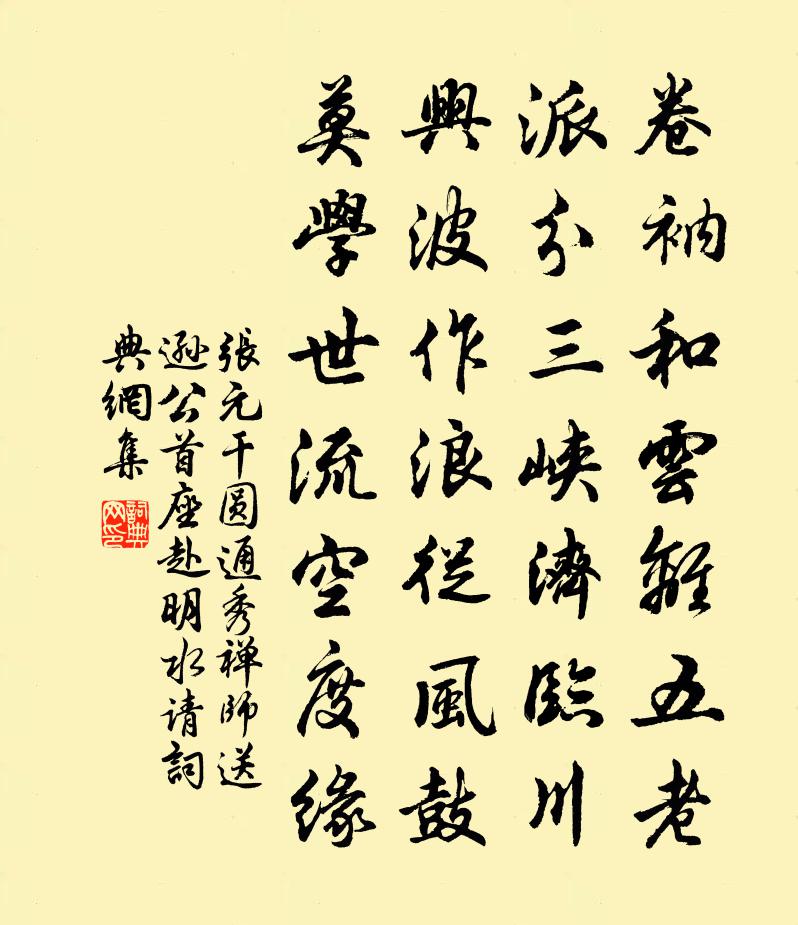 卷衲和雲離五老
派分三峽濟臨川
興波作浪從風鼓
莫學世流空度緣
張元干圆通秀禅師送
遜公首座赴明水请詞
典網集
詞典網印